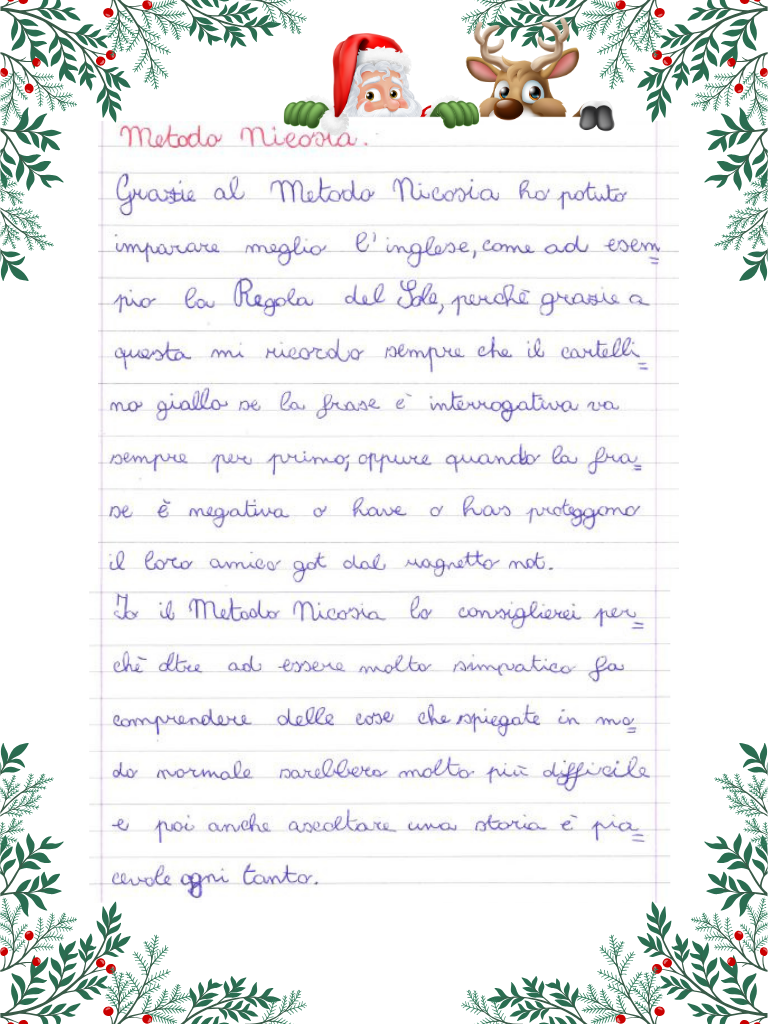 Metodo Nicosia.
Grazie al Metodo Nicosia ho potuto
imparare meglio l'inglese, come ad esem=
pio la Regola del Sole, perchè grazie a
questa mi ricordo sempre che il cartelli=
no giallo se la frase è interrogativa va
sempre per primo; oppure quando la fra=
se è negativa o have o has proteggono
il loro amico got dal ragnetto not.
Io il Metodo Nicosia lo consiglierei per=
chè oltre ad essere molto simpatico fa
comprendere delle cose che spiegate in mo=
do normale sarebbero molto più difficile
e poi anche ascoltare una storia è pia=
cevole ogni tanto.